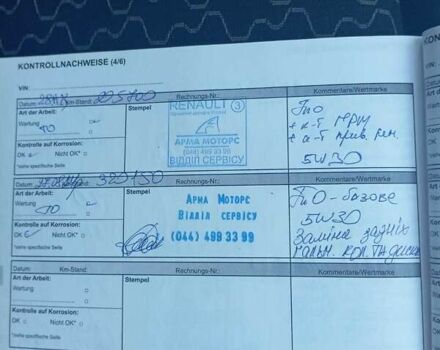 KONTROLLNACHWEISE (4/6)
VIN:
Datum: Km-Stand: 225700 Rechnungs-Nr.: Kommentare/Wertmarke
Art der Arbeit: Stempel
Wartung
ТО
Kontrolle auf Korrosion:
OK Nicht OK*
*siehe spezifische Seite
RENAULT 3
АРМА МОТОРС
(044) 499 33 99
ВІДДІЛ СЕРВІСУ
ТО
+ к-т ГРМ
+ к-т прив. рем.
5W30
Datum: Km-Stand: 329150 Rechnungs-Nr.: Kommentare/Wertmarke
Art der Arbeit: Stempel
Wartung
ТО
Kontrolle auf Korrosion:
OK Nicht OK*
*siehe spezifische Seite
АРМА МОТОРС
ВІДДІЛ СЕРВІСУ
(044) 499 33 99
ТО - базове
5W30
Заміна задніх
гальм. кол. та диски
Datum: Km-Stand: Rechnungs-Nr.: Kommentare/Wertmarke
Art der Arbeit: Stempel
Wartung
Kontrolle auf Korrosion:
OK Nicht OK*
*siehe spezifische Seite